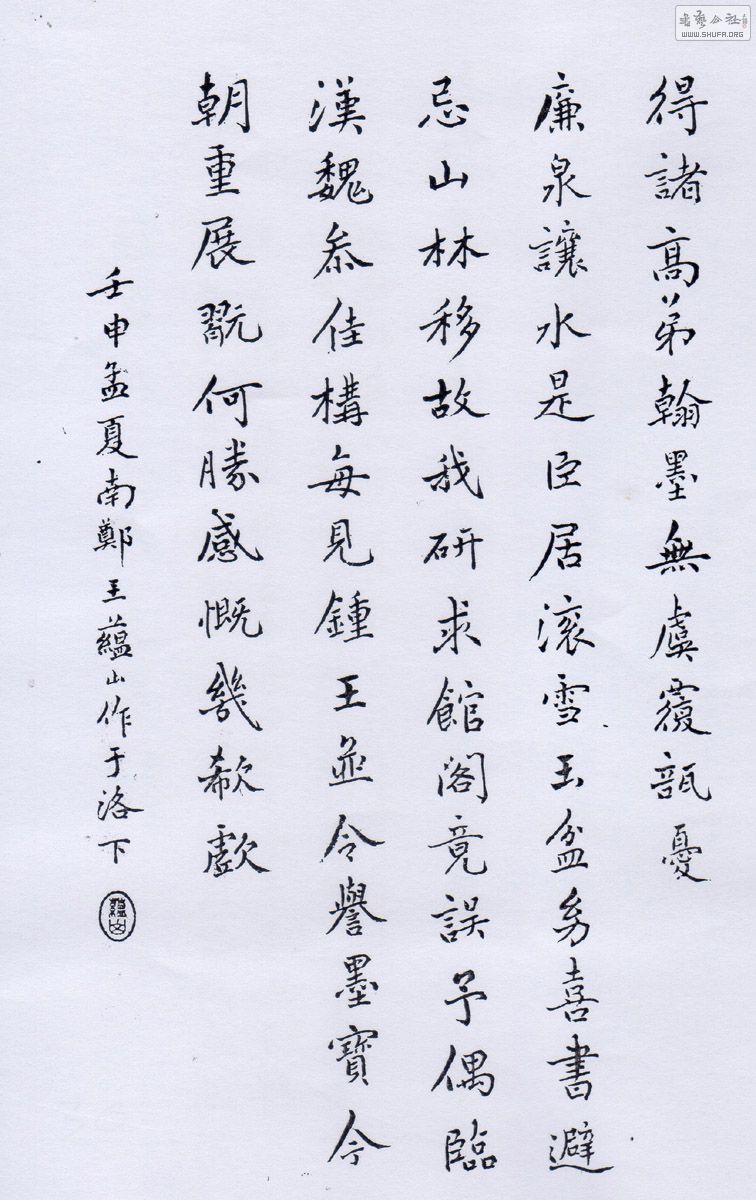 得諸高弟翰墨無虞覆瓿憂
廉泉讓水是臣居滾雪玉盆多喜書避
忌山林移故我研求館閣竟誤予偶臨
漢魏叅佳構每見鍾王並令譽墨寶今
朝重展翫何勝感慨幾欷歔
壬申孟夏南鄭王蘊山作于洛下
蘊山
書藝公社
WWW.SHUFA.ORG